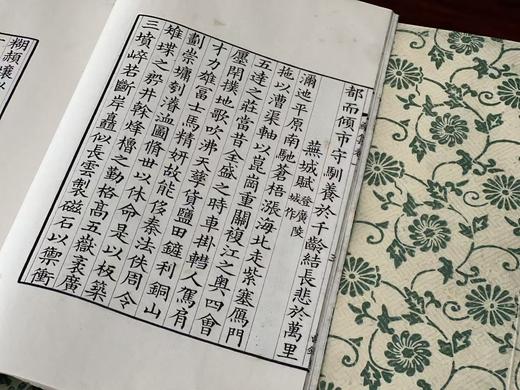 都而傾市守馴養於千齡結長悲於萬里
蕪城賦登廣陵城作
濔迆平原南馳蒼梧漲海北走紫塞鴈門
拖以漕渠軸以崑崗重關複江之奥四會
五達之莊當昔全盛之時車掛轊人駕肩
廛閈撲地歌吹沸天孳貨鹽田鏟利銅山
才力雄富士馬精妍故能侈秦法佚周令
劃崇墉刳濬洫圖脩世以休命是以板築
雉堞之殷井幹烽櫓之勤格高五嶽袤廣
三墳崪若斷岸矗似長雲製磁石以禦衝
糊赬壤以